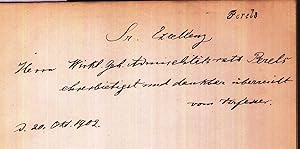 Perels
Sr. Excellenz
Herrn Wirkl. Geh. Admiralitätsrath Perels
ehrerbietigst und dankbar überreicht
vom Verfasser.
d. 20. Okt. 1902.